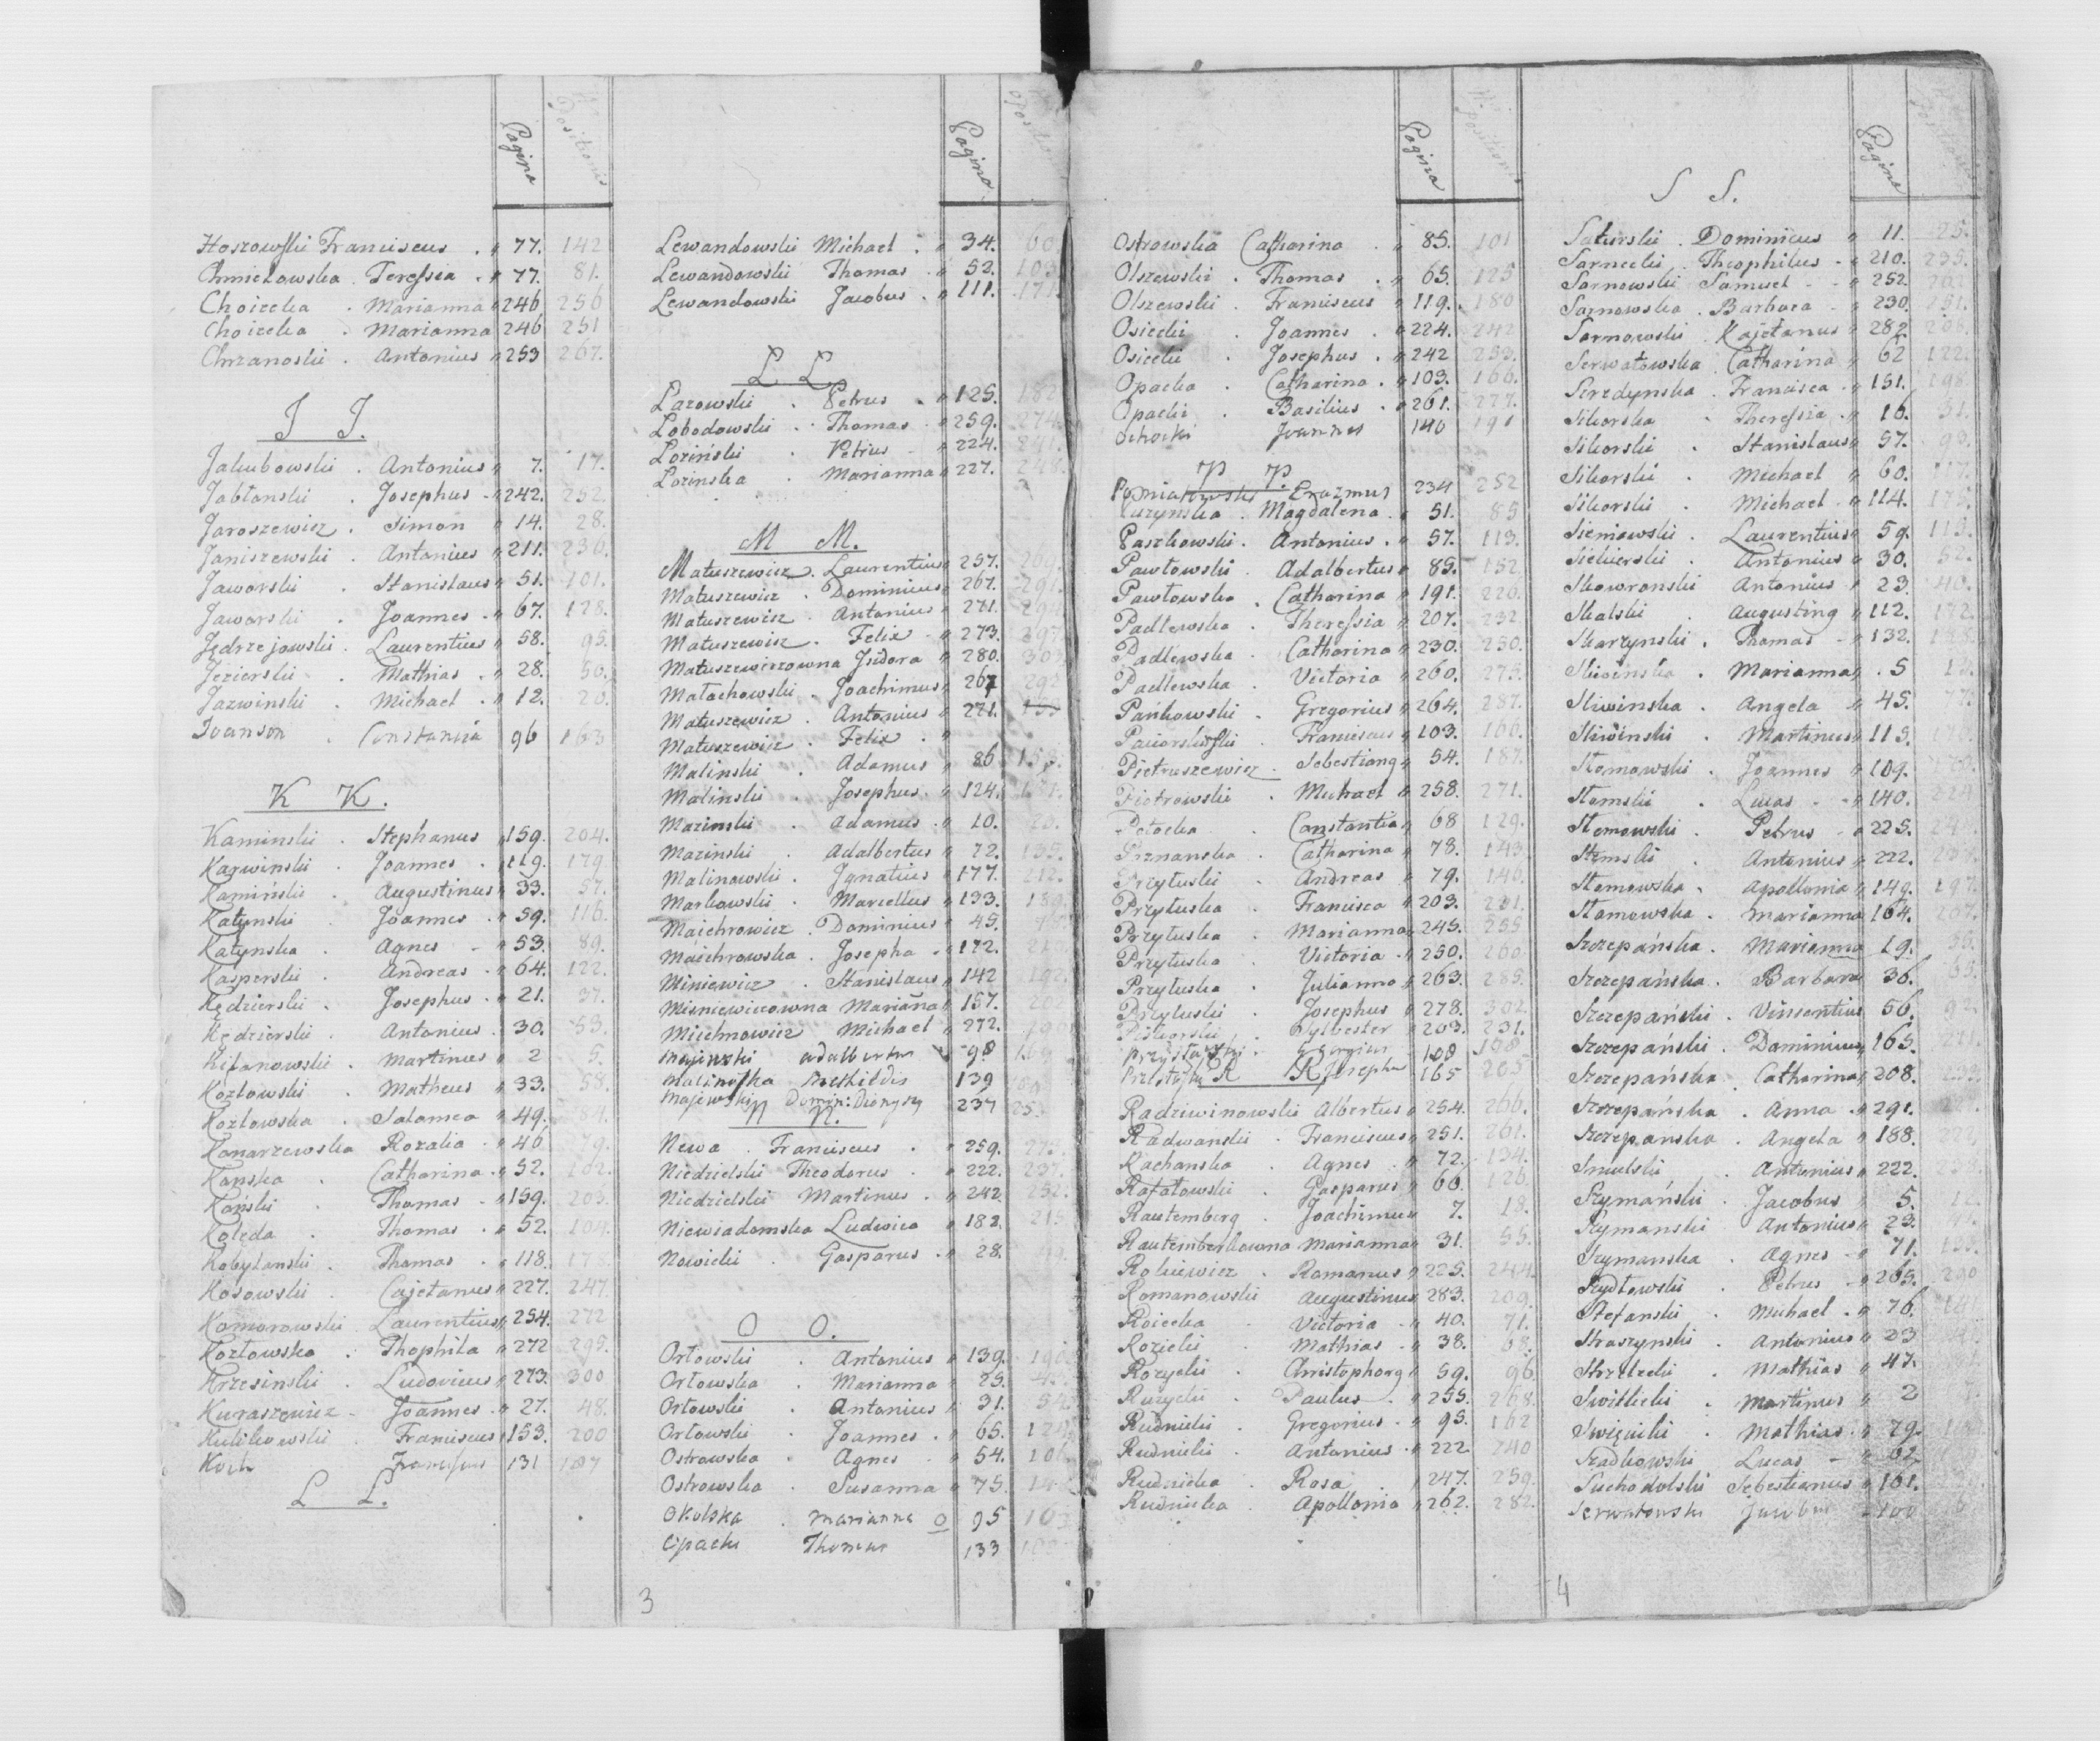 Pagina Positionis
Hoszowski Franciscus 77. 142
Chmielowska Teressia 77. 81.
Choicka Marianna 246 256
Choicka Marianna 246 251
Chrzanoski Antonius 253 267.
J J.
Jakubowski Antonius 7. 17.
Jabłonski Josephus 242. 252.
Jaroszewicz Simon 14. 28.
Janiszewski Antonius 211. 236.
Jaworski Stanislaus 51. 101.
Jaworski Joannes 67. 128.
Jędrzejowski Laurentius 58. 95.
Jezierski Mathias 28. 50.
Jazwinski Michael 12. 20.
Iwanson Constancia 96 163
K K.
Kaminski Stephanus 159. 204.
Karwinski Joannes 119. 179
Kamiński Augustinus 33. 57.
Katynski Joannes 59. 116.
Katynska Agnes 53. 89.
Kasperski Andreas 64. 122.
Kędzierski Josephus 21. 37.
Kędzierski Antonius 30. 53.
Kijanowski Martinus 2 5.
Kozłowski Matheus 33. 58.
Kozłowska Salomea 49. 84.
Konarzewska Rozalia 46 79.
Konska Catharina 52. 102.
Koński Thomas 159. 203.
Kolęda Thomas 52. 104.
Kobylanski Thomas 118. 178
Kosowski Cajetanus 227. 247.
Komorowski Laurentius 254. 272
Kozłowska Thophila 272 295.
Krzesinski Ludovicus 273. 300
Kuraszewicz Joannes 27. 48.
Kulikowski Franciscus 153. 200
Koch 131 187
L L.
Pagina
Lewandowski Michael 34. 60
Lewandowski Thomas 52. 103.
Lewandowski Jacobus 111. 171.
L L
Lazowski Petrus 125. 182
Lobodowski Thomas 259. 274.
Loziński Petrus 224. 241.
Lozinska Marianna 227. 248.
M M.
Matuszewicz Laurentius 257. 269.
Matuszewicz Dominicus 267. 291.
Matuszewicz Antonius 271. 294
Matuszewicz Felix 273. 297
Matuszewiczowna Isidora 280. 303
Matachowski Joachimus 267 292
Matuszewicz Antonius 271.
Matuszewicz Felix
Malinski Adamus 86
Malinski Josephus 124. 181.
Mazinski Adamus 10. 23.
Mazinski Adalbertus 72. 135.
Malinowski Ignatius 177. 212.
Markowski Marcellus 133. 189.
Maichrowicz Dominicus 45.
Maichrowska Josepha 172.
Miniewicz Stanislaus 142 192.
Misniewiczowna Mariana 157. 202
Michnowicz Michael 272.
Majewski Adalbertus 98 169
Malinoska Mechildis 139
Majewski Domin: Dionysy 237
N N.
Newa Franciscus 259. 273.
Niedzielski Theodorus 222. 237.
Niedzielski Martinus 242. 252.
Niewiadomska Ludwica 182. 215
Nowicki Gasparus 28. 49.
O O.
Orłowski Antonius 139. 190.
Orłowska Marianna 25.
Orłowski Antonius 31. 54.
Orłowski Joannes 65. 124.
Ostrowska Agnes 54. 106.
Ostrowska Susanna 75. 14
Okolska Marianna O 95 163
Opacki Thomas 133
3
Pagina Nr positionis
Ostrowska Catharina 85. 101
Olszewski Thomas 65. 125
Olszewski Franciscus 119. 180
Osiecki Joannes 224. 242
Osiecki Josephus 242 253.
Opacka Catharina 103. 166.
Opacki Basilius 261. 277.
Ochocki Joannes 140 191
P P.
Poniatowski Erazmus 234 252
Magdalena 51. 85
Paszkowski Antonius 57. 113.
Pawłowski Adalbertus 83. 152
Pawłowska Catharina 191. 220.
Padlewska Theressia 207. 232.
Padlewska Catharina 230. 250.
Padlewska Victoria 260. 275.
Pańkowski Gregorius 264. 287.
Franciscus 103. 166.
Pietruszewicz Sebestiang 54. 187.
Piotrowski Michael 258. 271.
Potocka Constantia 68 129.
Poznanska Catharina 78. 143.
Przytuski Andreas 79. 146.
Przytuska Francisca 203. 231.
Przytuska Marianna 245. 255
Przytuska Victoria 250. 260
Przytuska Julianna 263. 285.
Przytuski Josephus 278. 302.
Pilkorski Sylvester 203. 231.
108 198
Josepha 165 205
R R
Radziwinowski Albertus 254. 266.
Radwanski Franciscus 251. 261.
Rachanska Agnes 72. 134.
Rafałowski Gasparus 60. 126.
Rautemberg Joachimus 7. 18.
Rautemberkowna Marianna 31. 55.
Rolniewicz Romanus 225. 244.
Romanowski Augustinus 283. 209.
Roicelka Victoria 40. 71.
Rozicki Mathias 38. 68.
Rozycki Christophorg 59. 96
Ruzycki Paulus 255. 268.
Rudnicki Gregorius 95. 162
Rudnicki Antonius 222 240
Rudnicka Rosa 247. 259.
Rudnicka Apollonia 262. 282.
Pagina
S S.
Saturski Dominicus 11. 25.
Sarnecki Theophilus 210. 235.
Sarnowski Samuel 252. 262
Sarnowska Barbara 230. 251.
Sarnowski Kajetanus 282 208.
Serwatowska Catharina 62 122.
Serzdynska Francisca 151. 198.
Sikorska Theressia 16. 31.
Sikorski Stanislaus 57. 93.
Sikorski Michael 60. 117.
Sikorski Michael 114. 175.
Sieniowski Laurentius 59. 115.
Siekierski Antonius 30. 52.
Skowronski Antonius 23 40.
Skalski Augusting 112. 172.
Skarzynski Thomas 132. 188.
Sliwinska Marianna 5
Sliwinska Angela 45. 77.
Sliwinski Martinus 115.
Słomowski Joannes 109.
Słomski Lucas 140. 224
Słomowski Petrus 225.
Słomski Antonius 222. 238.
Słomowska Apollonia 149. 197.
Słomowska Marianna 164. 207.
Szczepańska Marianna 19. 35.
Szczepańska Barbara 36. 65.
Szczepański Vincentius 56. 92.
Szczepański Dominicus 165. 211.
Szczepańska Catharina 208. 233.
Szczepańska Anna 291.
Szczepanska Angela 188. 222.
Smulski Antonius 222. 238.
Szymański Jacobus 5. 12.
Szymanski Antonius 23. 41.
Szymanska Agnes 71. 133.
Szydłowski Petrus 265. 290
Stefanski Michael 76. 141
Straszynski Antonius 23
Strzelecki Mathias 47.
Swiltlicki Martinus 2
Swięcicki Mathias 79.
Szadkowski Lucas 62
Suchodolski Sebestianus 161.
Serwatowski Jacobus 100
4